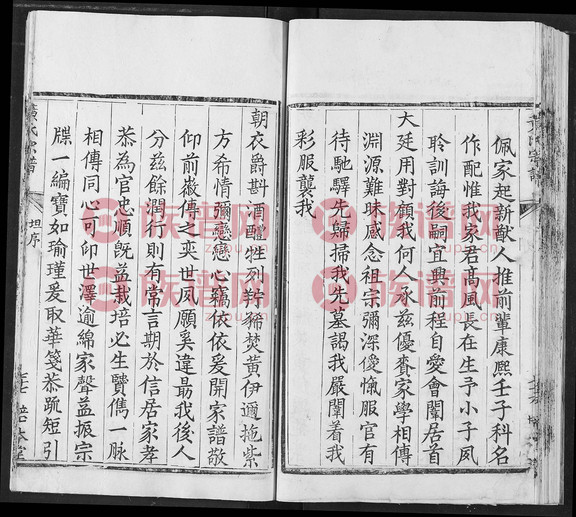 佩家起新猷人推前輩康熙壬子科名
作配惟我家君高風長在生予小子夙
聆訓誨後嗣宜興前程自愛會闈居首
大廷用對顧我何人承茲優賚家學相傳
淵源難昧感念祖宗彌深僾愾服官有
待馳驛先歸掃我先墓謁我嚴闈着我
彩服襲我
朝衣爵斟酒醴牲列辨豨焚黃伊邇拖紫
方希情彌戀戀心竊依依爰開家譜敬
仰前徽傳之奕世夙願奚違最我後人
分茲餘潤行則有常言期於信居家孝
恭為官忠順既益栽培必生賢儁一脉
相傳同心可印世澤逾綿家聲益振宗
牒一編寶如瑜瑾爰取華箋恭疏短引
黃氏宗譜
坦序
族谱网
zupu.cn